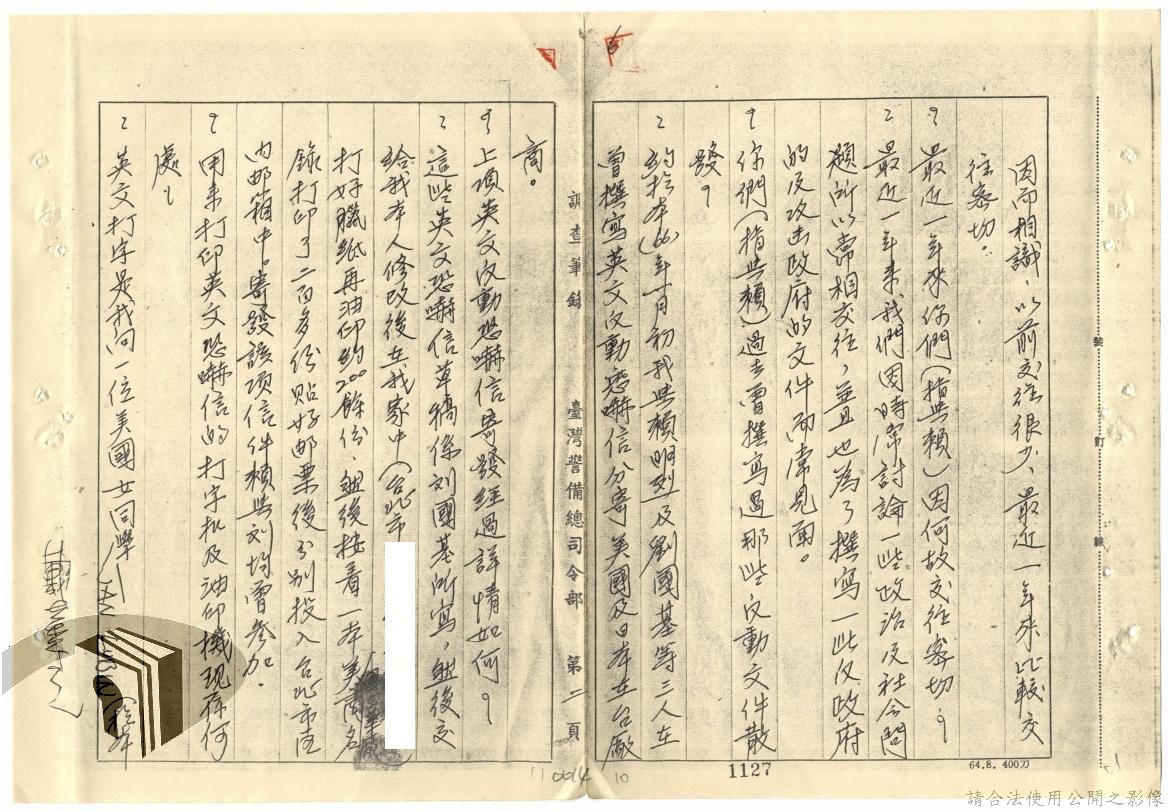 因而相識，以前交往很少，最近一年來比較交
往密切。
？最近一年來你們（指與賴）因何故交往密切？
：最近一年來我們因時常討論一些政治及社會問
題所以常相交往，並且也為了撰寫一些反政府
的及攻击政府的文件而常見面。
？你們（指與賴）過去曾撰寫過那些反動文件散
發？
：約於本(66)年十月初我與賴明烈及劉國基等三人在
曾撰寫英文反動恐嚇信分寄美國及日本在台廠
調查筆錄 臺灣警備總司令部 第二頁
商。
？上項英文反動恐嚇信寄發經過詳情如何？
：這些英文恐嚇信草稿係刘國基所寫，然後交
給我本人修改後在我家中（台北市
打好臘紙再油印約200餘份，然後按着一本美商名
錄打印了二百多份貼好邮票後分别投入台北市
内邮箱中。寄發該項信件賴與刘均曾參加。
？用來打印英文恐嚇信的打字机及油印機現存何
處？
：英文打字是我向一位美國女同學
6
1127
64.8. 400刀
10
裝
訂
線
請合法使用公開之影像